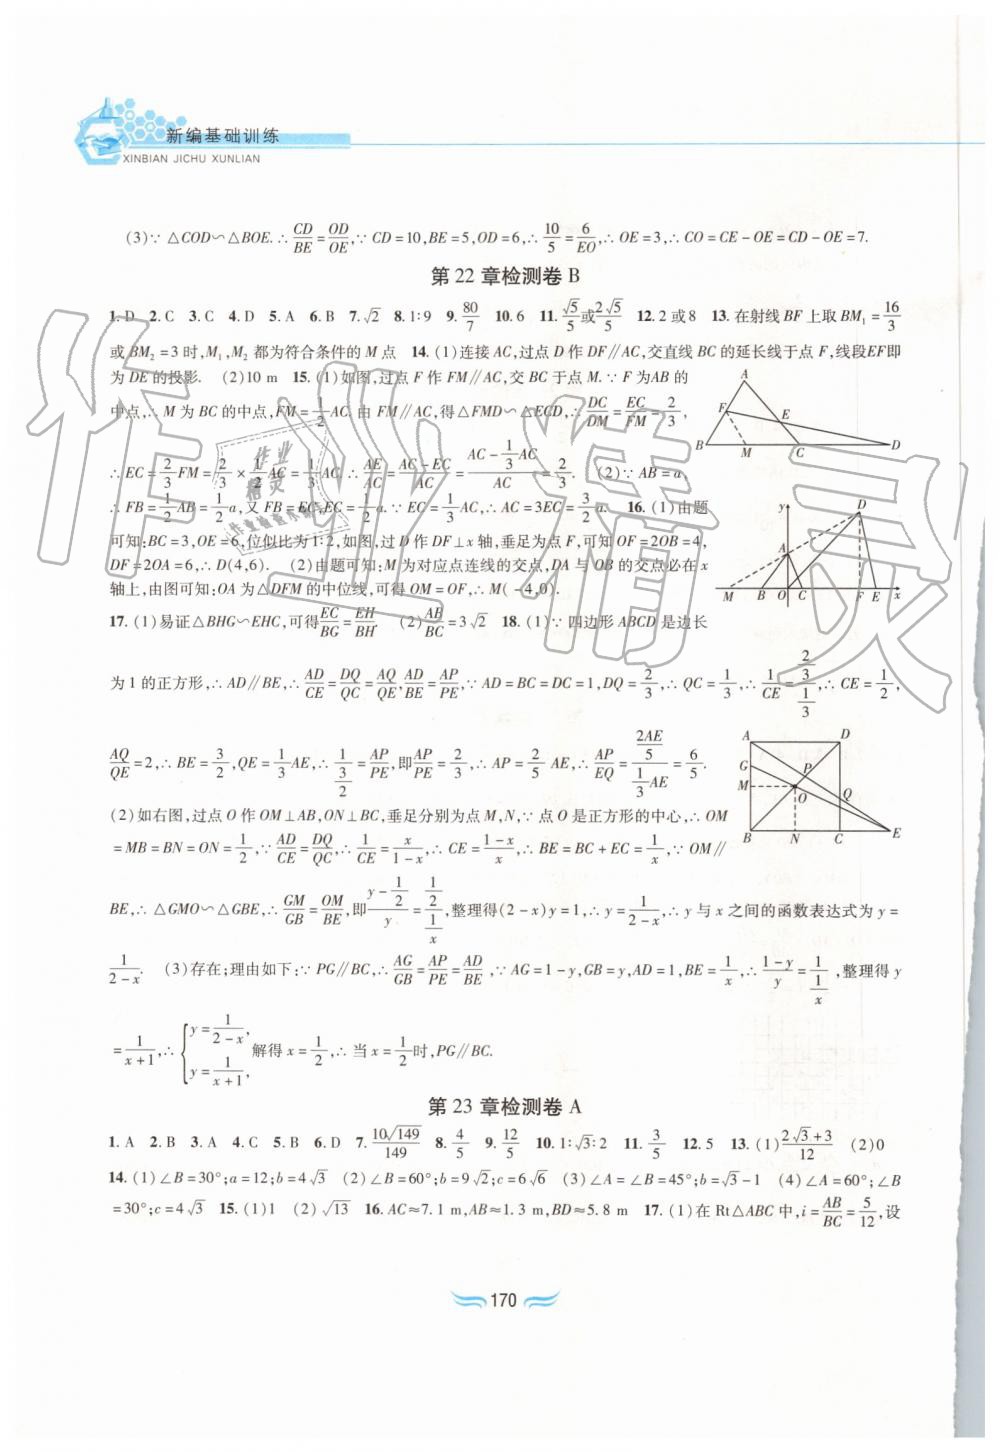 新编基础训练
XINBIAN JICHU XUNLIAN
(3)∵ △COD∽△BOE.∴ CD/BE = OD/OE,∵ CD=10,BE=5,OD=6,∴ 10/5 = 6/EO,∴ OE=3,∴ CO=CE-OE=CD-OE=7.
第 22 章检测卷 B
1. D 2. C 3. C 4. D 5. A 6. B 7. √2 8. 1∶9 9. 80/7 10. 6 11. √5/5 或 2√5/5 12. 2 或 8 13. 在射线 BF 上取 BM₁ = 16/3
或 BM₂=3 时,M₁,M₂ 都为符合条件的 M 点 14. (1)连接 AC,过点 D 作 DF∥AC,交直线 BC 的延长线于点 F,线段EF即
为 DE 的投影. (2)10 m 15. (1)如图,过点 F 作 FM∥AC,交 BC 于点 M.∵ F 为AB 的
中点,∴ M 为 BC 的中点,FM= 1/2 AC. 由 FM∥AC,得△FMD∽△ECD,∴ DC/DM = EC/FM = 2/3,
∴ EC= 2/3 FM= 2/3 × 1/2 AC= 1/3 AC,∴ AE/AC = (AC-EC)/AC = (AC- 1/3 AC)/AC = 2/3. (2)∵ AB=a
∴ FB= 1/2 AB= 1/2 a,又 FB=EC,EC= 1/2 a.∵ EC= 1/3 AC,∴ AC=3EC= 3/2 a. 16. (1)由题
可知:BC=3,OE=6,位似比为 1∶2,如图,过 D 作 DF⊥x 轴,垂足为点 F,可知 OF=2OB=4,
DF=2OA=6,∴ D(4,6). (2)由题可知:M 为对应点连线的交点,DA 与 OB 的交点必在 x
轴上,由图可知:OA 为△DFM 的中位线,可得 OM=OF,∴ M(-4,0).
17. (1)易证△BHG∽EHC,可得 EC/BG = EH/BH (2) AB/BC =3√2 18. (1)∵ 四边形 ABCD 是边长
为 1 的正方形,∴ AD∥BE,∴ AD/CE = DQ/QC = AQ/QE, AD/BE = AP/PE,∵ AD=BC=DC=1,DQ= 2/3,∴ QC= 1/3,∴ 1/CE = (2/3)/(1/3),∴ CE= 1/2,
AQ/QE =2,∴ BE= 3/2,QE= 1/3 AE,∴ 1/(3/2) = AP/PE,即 AP/PE = 2/3,∴ AP= 2/5 AE,∴ AP/EQ = (2AE/5)/(1/3 AE) = 6/5.
(2)如右图,过点 O 作 OM⊥AB,ON⊥BC,垂足分别为点 M,N,∵ 点 O 是正方形的中心,∴ OM
=MB=BN=ON= 1/2,∵ AD/CE = DQ/QC,∴ 1/CE = x/(1-x),∴ CE= (1-x)/x,∴ BE=BC+EC= 1/x,∵ OM∥
BE,∴ △GMO∽△GBE,∴ GM/GB = OM/BE,即 (y- 1/2)/y = (1/2)/(1/x),整理得(2-x)y=1,∴ y= 1/(2-x),∴ y 与 x 之间的函数表达式为 y=
1/(2-x). (3)存在;理由如下:∵ PG∥BC,∴ AG/GB = AP/PE = AD/BE,∵ AG=1-y,GB=y,AD=1,BE= 1/x,∴ (1-y)/y = 1/(1/x),整理得 y
= 1/(x+1),∴ { y= 1/(2-x), y= 1/(x+1), 解得 x= 1/2,∴ 当 x= 1/2 时,PG∥BC.
第 23 章检测卷 A
1. A 2. B 3. A 4. C 5. B 6. D 7. 10√149/149 8. 4/5 9. 12/5 10. 1∶√3∶2 11. 3/5 12. 5 13. (1) (2√3+3)/12 (2)0
14. (1)∠B=30°;a=12;b=4√3 (2)∠B=60°;b=9√2;c=6√6 (3)∠A=∠B=45°;b=√3-1 (4)∠A=60°;∠B
=30°;c=4√3 15. (1)1 (2)√13 16. AC≈7.1 m,AB≈1.3 m,BD≈5.8 m 17. (1)在 Rt△ABC 中,i= AB/BC = 5/12,设
A
F
E
B
M
C
D
y
D
A
M
B
O
C
F
E
x
A
D
G
P
M
O
Q
B
N
C
E
170
作业精灵
作业
精灵